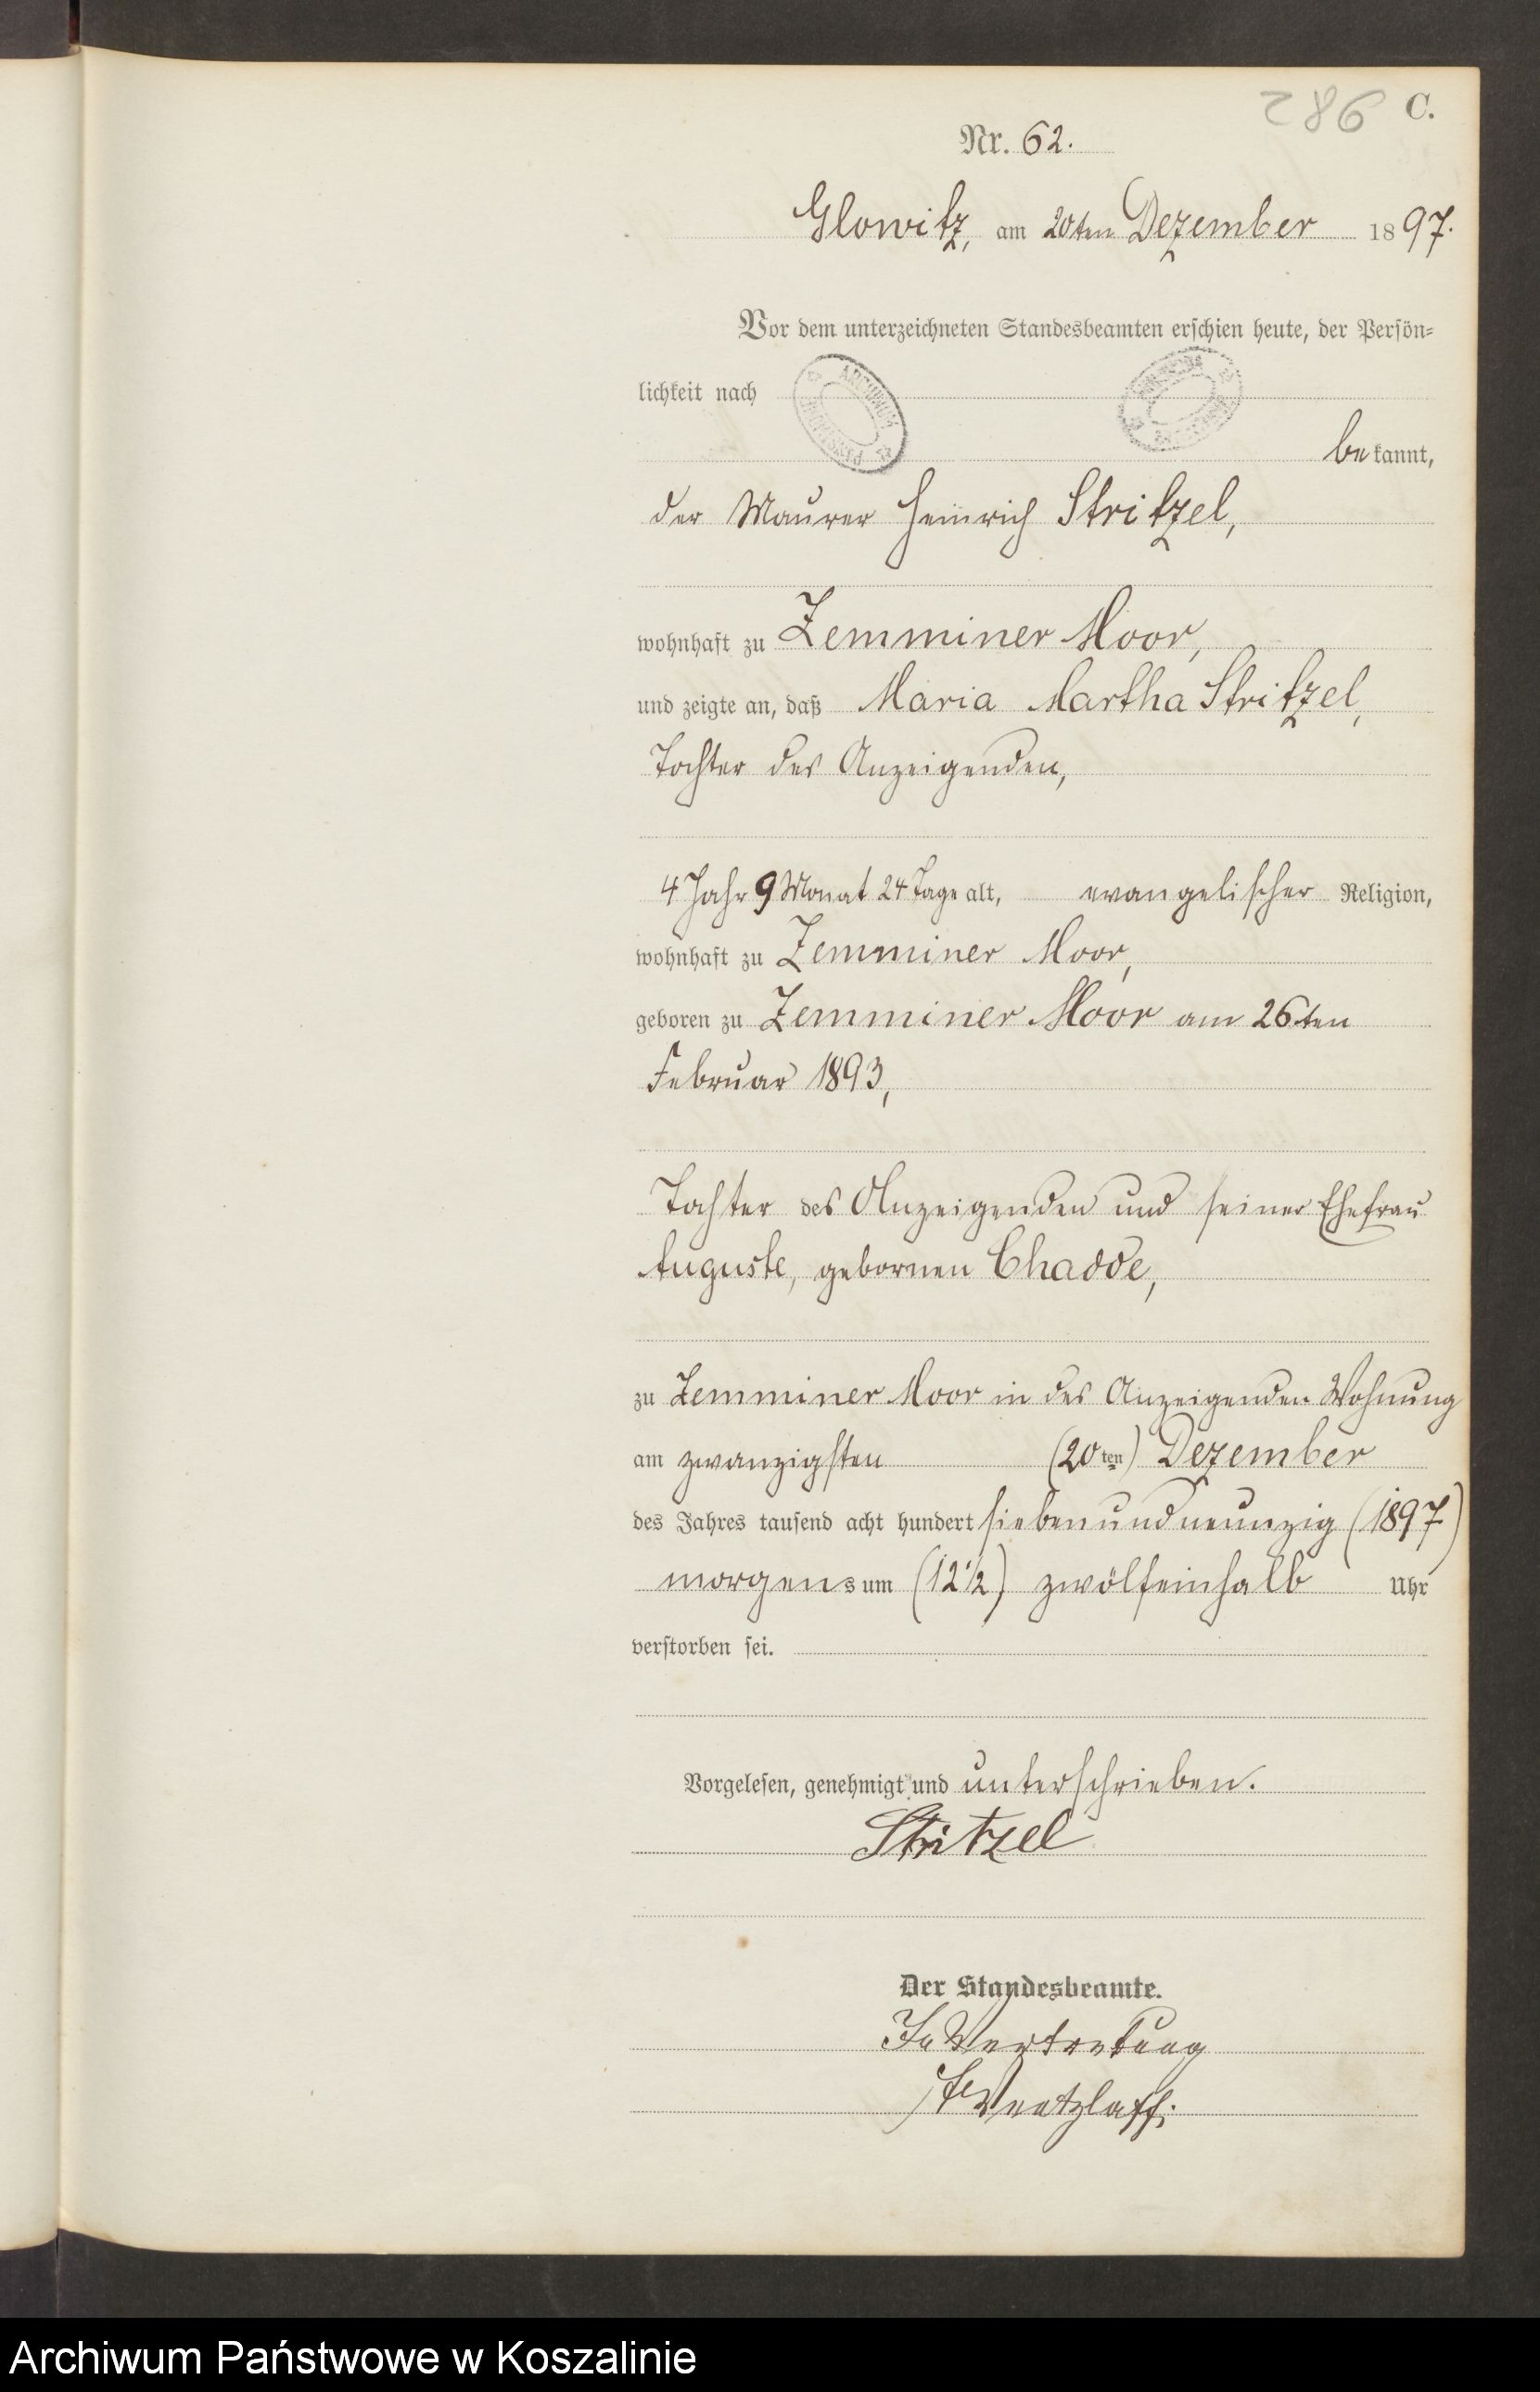 286 C.
Nr. 62.
Glowitz, am 20ten Dezember 1897.
Vor dem unterzeichneten Standesbeamten erschien heute, der Persön-
lichkeit nach
bekannt,
der Maurer Heinrich Stritzel,
wohnhaft zu Zemminer Moor,
und zeigte an, daß Maria Martha Stritzel,
Tochter des Anzeigenden,
4 Jahr 9 Monat 24 Tage alt, evangelischer Religion,
wohnhaft zu Zemminer Moor,
geboren zu Zemminer Moor am 26ten
Februar 1893,
Tochter des Anzeigenden und seiner Ehefrau
Auguste, gebornen Chadde,
zu Zemminer Moor in des Anzeigenden Wohnung
am zwanzigsten (20ten) Dezember
des Jahres tausend acht hundert siebenundneunzig (1897)
morgens um (12 1/2) zwölfeinhalb Uhr
verstorben sei.
Vorgelesen, genehmigt und unterschrieben.
Stritzel
Der Standesbeamte.
In Vertretung
Wentzlaff.
Archiwum Państwowe w Koszalinie